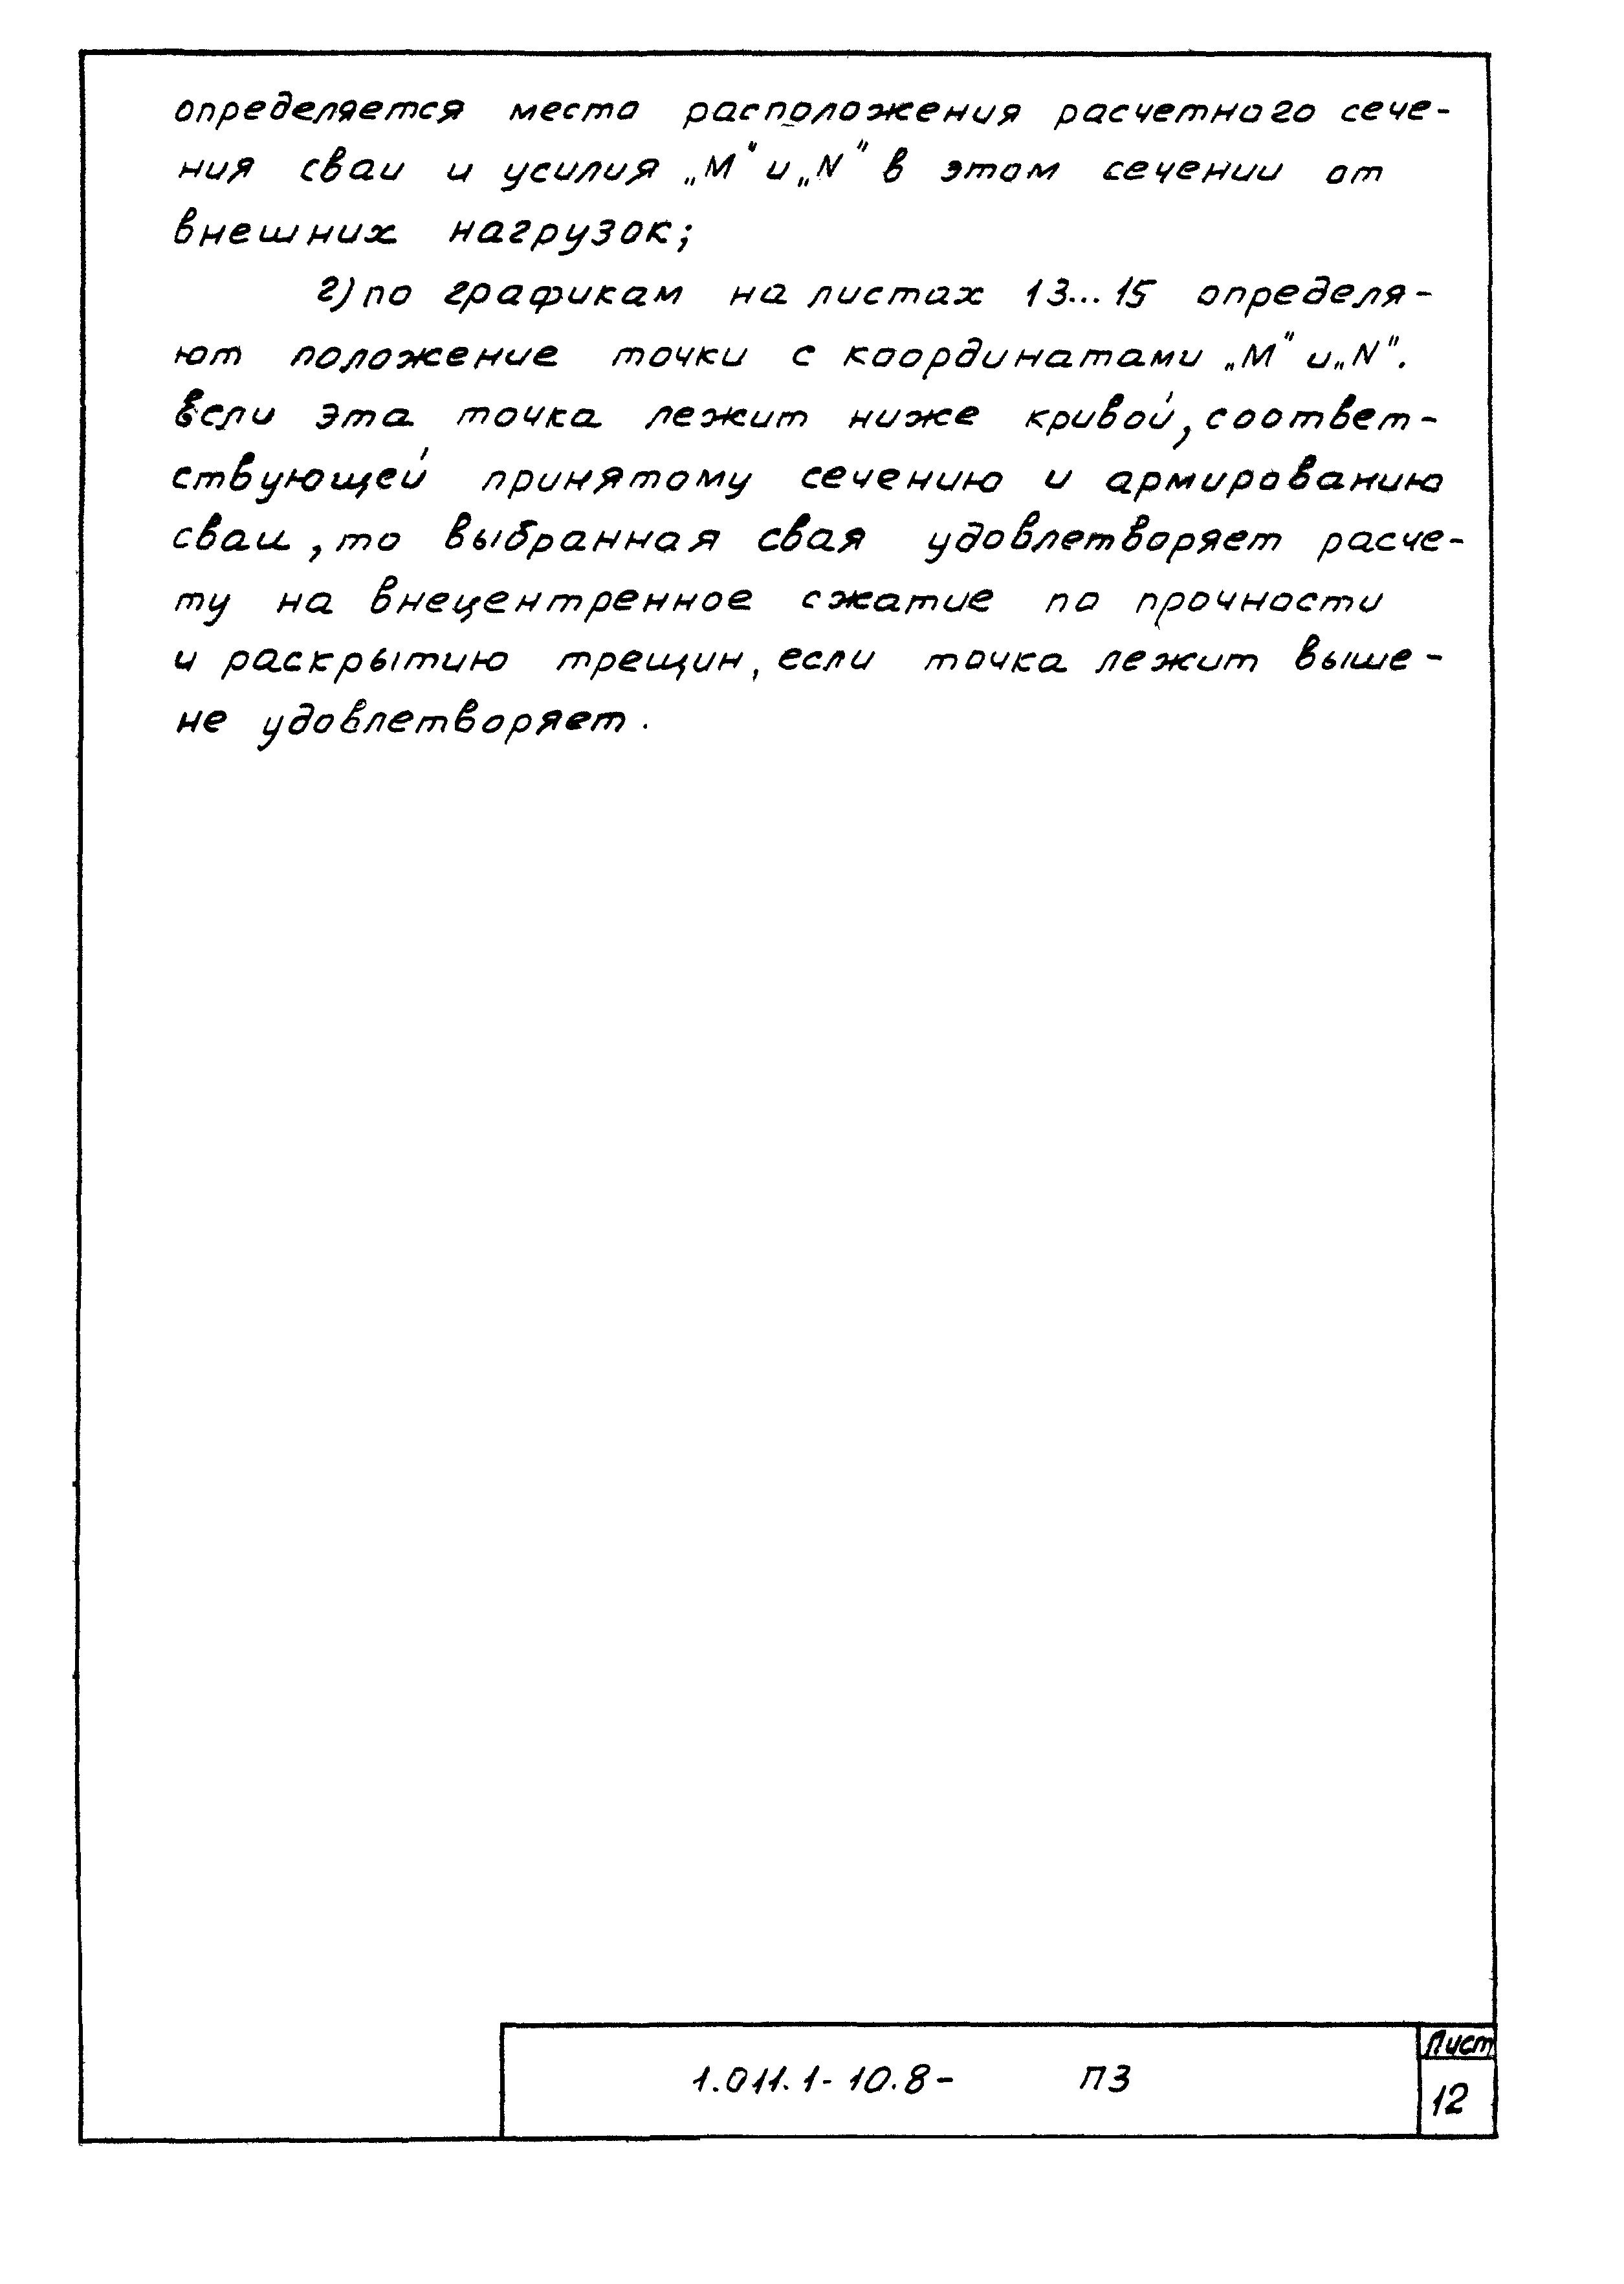 определяется место расположения расчетного сече-
ния сваи и усилия „М" и „N" в этом сечении от
внешних нагрузок;
г) по графикам на листах 13...15 определя-
ют положение точки с координатами „М" и „N".
Если эта точка лежит ниже кривой, соответ-
ствующей принятому сечению и армированию
сваи, то выбранная свая удовлетворяет расче-
ту на внецентренное сжатие по прочности
и раскрытию трещин, если точка лежит выше -
не удовлетворяет.
1.011.1-10.8- ПЗ
Лист
12